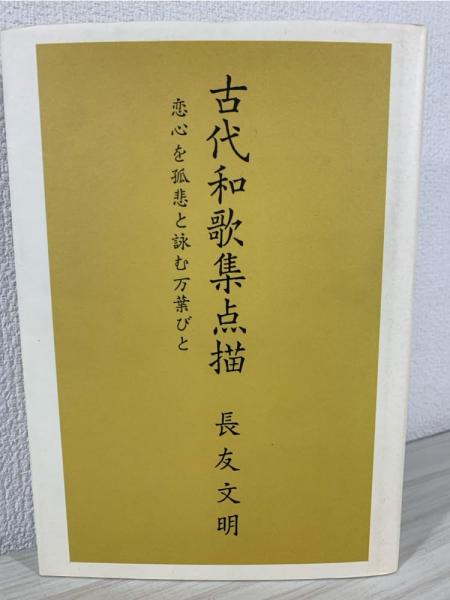 古代和歌集点描
恋心を孤悲と詠む万葉びと
長友文明